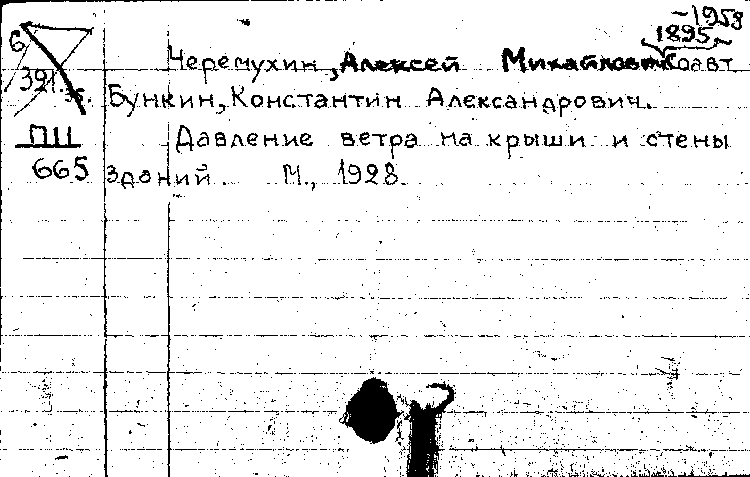 1895-1958
Черемухин, Алексей Михайлович Соавт
Бункин, Константин Александрович.
Давление ветра на крыши и стены
зданий. М., 1928.
6
391
ПЦ
665